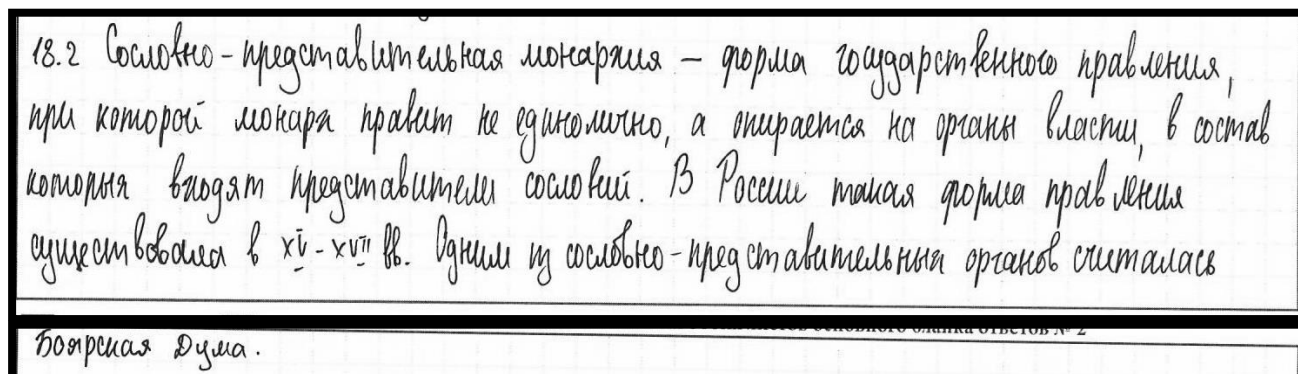 18.2 Сословно-представительная монархия – форма государственного правления,
при которой монарх правит не единолично, а опирается на органы власти, в состав
которых входят представители сословий. В России такая форма правления
существовала в XV-XVII вв. Одним из сословно-представительных органов считалась
ответов № 2
Боярская Дума.